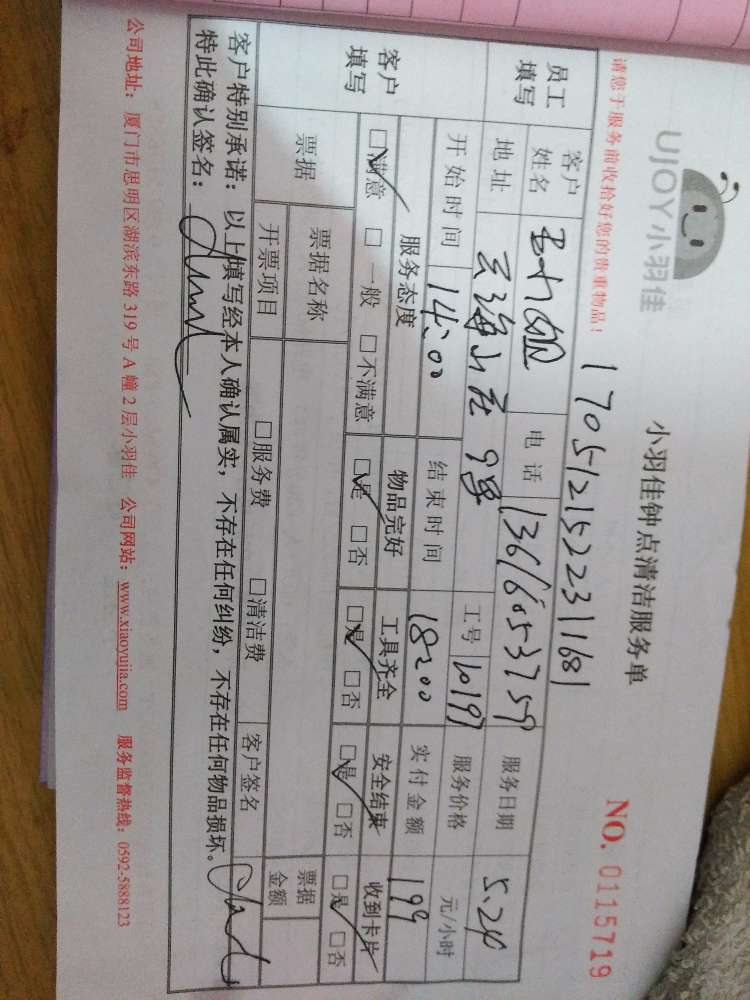 UJOY小羽佳
小羽佳钟点清洁服务单
NO. 0115719
请您于服务前收拾好您的贵重物品!
1705121522311681
员工填写
客户姓名 电话 13616053759 服务日期 5.24
地址 云海山庄 9号 工号 10197 服务价格 元/小时
开始时间 14:00 结束时间 18:00 实付金额 199
客户填写
服务态度 物品完好 工具齐全 安全结束 收到卡片
☑满意 □一般 □不满意 ☑是 □否 ☑是 □否 ☑是 □否 ☑是 □否
票据 票据名称 票据金额
开票项目 □服务费 □清洁费 客户签名
客户特别承诺:以上填写经本人确认属实,不存在任何纠纷,不存在任何物品损坏。
特此确认签名:
公司地址:厦门市思明区湖滨东路 319 号 A 幢 2 层小羽佳 公司网站:www.xiaoyujia.com 服务监督热线:0592-5888123